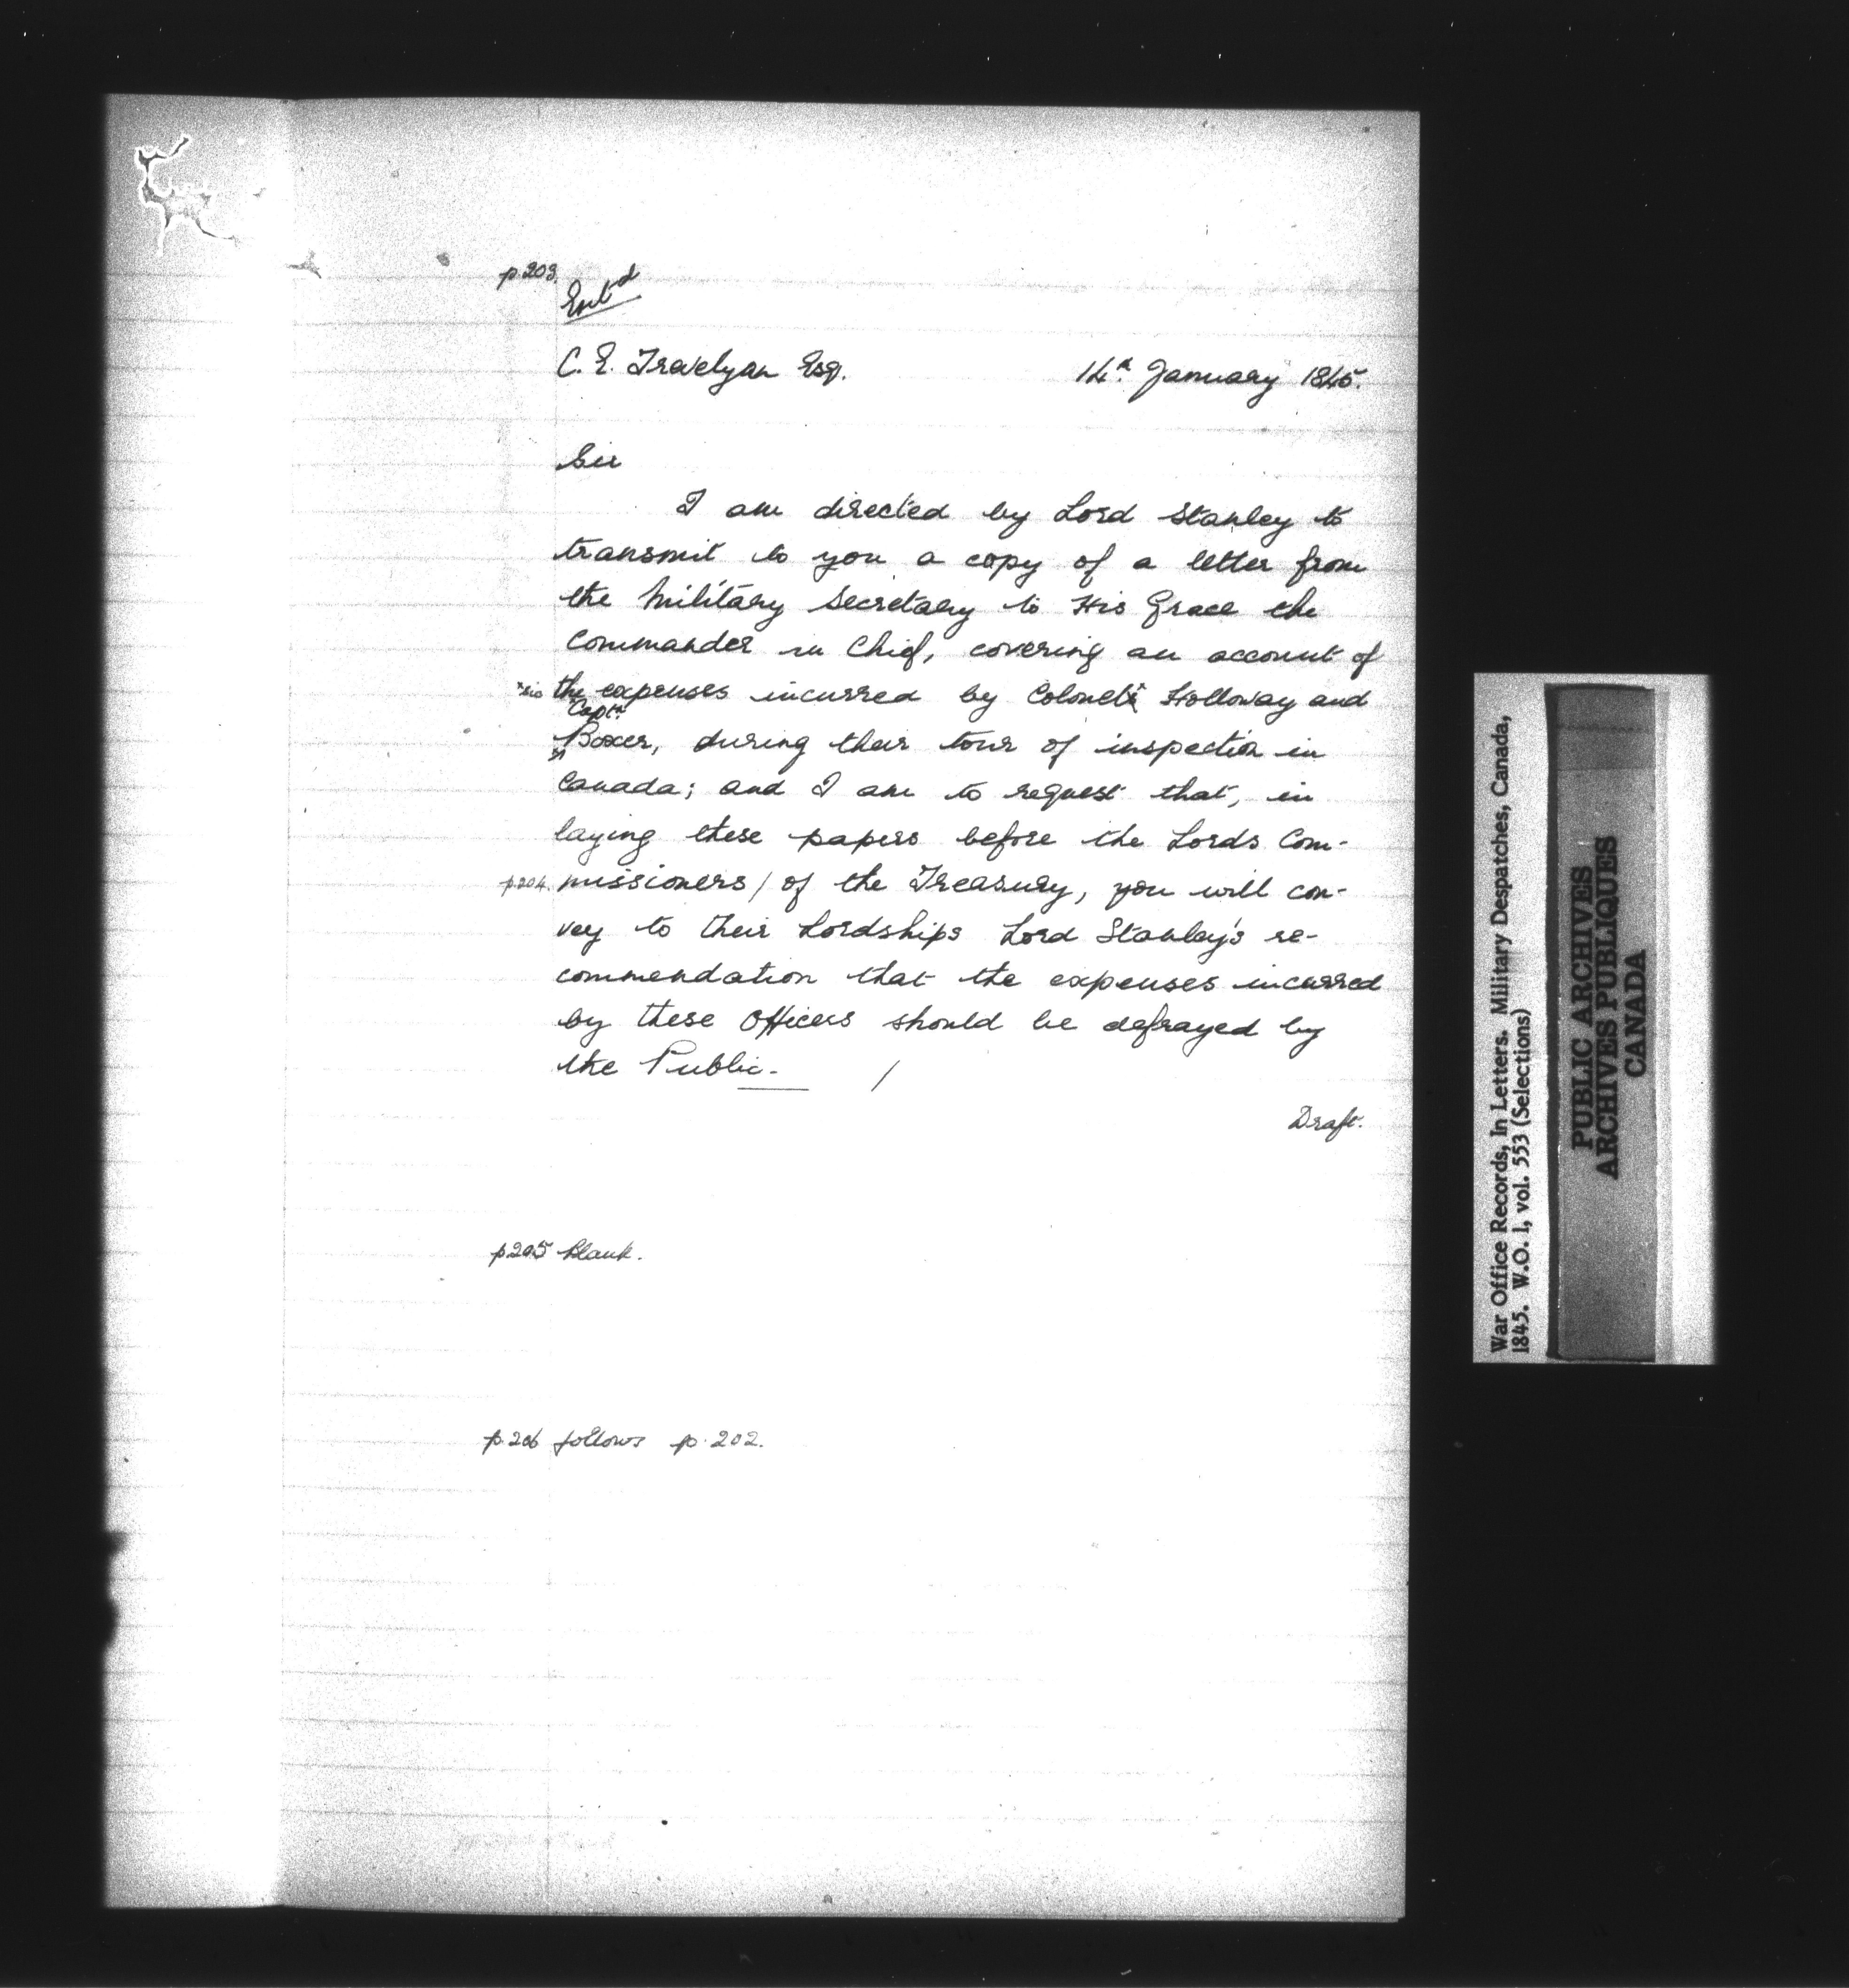 p.203.
Ent^d
C. E. Travelyan Esq. 14th January 1845.
Sir
I am directed by Lord Stanley to
transmit to you a copy of a letter from
the Military Secretary to His Grace the
Commander in Chief, covering an account of
*sic the expenses incurred by Colonels* Holloway and
Capt^n
^Boxer, during their tour of inspection in
Canada; and I am to request that, in
laying these papers before the Lords Com-
p.204. missioners / of the Treasury, you will con-
vey to their Lordships Lord Stanley's re-
commendation that the expenses incurred
by these Officers should be defrayed by
the Public. /
Draft.
p205 blank.
p.206 follows p.202.
War Office Records, In Letters. Military Despatches, Canada,
1845. W.O. 1, vol. 553 (Selections)
PUBLIC ARCHIVES
ARCHIVES PUBLIQUES
CANADA